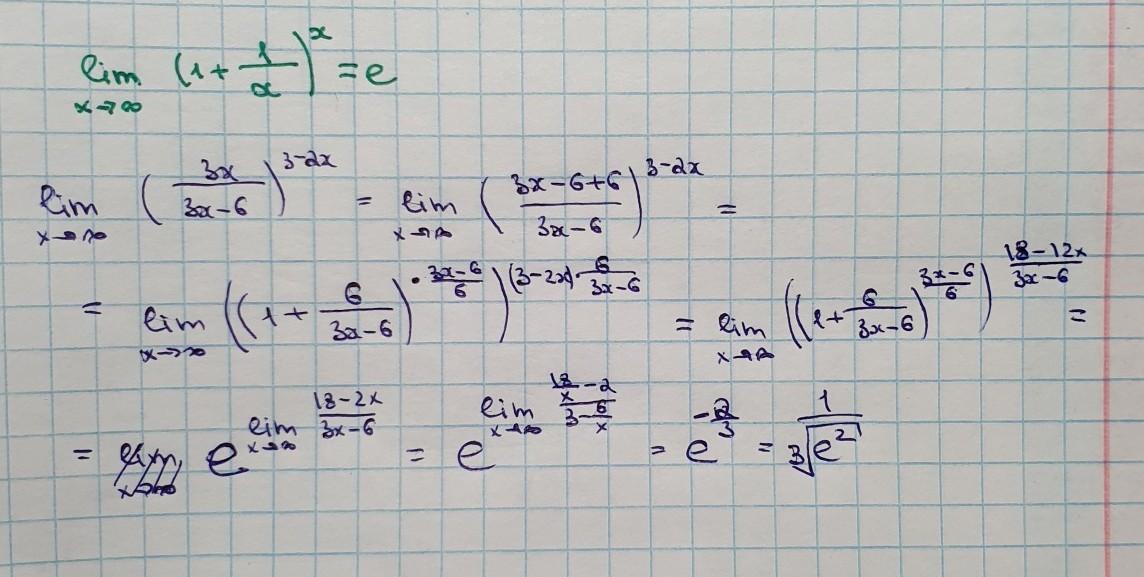 lim x→∞ (1 + 1/x)^x = e
lim x→∞ (3x/(3x-6))^(3-2x) = lim x→∞ ((3x-6+6)/(3x-6))^(3-2x) =
= lim x→∞ ((1 + 6/(3x-6))^(·(3x-6)/6))^((3-2x)·6/(3x-6)) = lim x→∞ ((1 + 6/(3x-6))^((3x-6)/6))^((18-12x)/(3x-6)) =
= e^(lim x→∞ (18-2x)/(3x-6)) = e^(lim x→∞ (18/x - 2)/(3 - 6/x)) = e^(-2/3) = 1/∛(e^2)